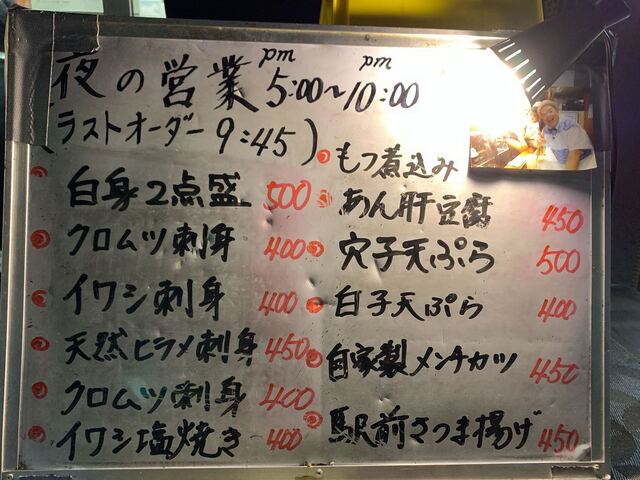 夜の営業 pm 5:00〜pm 10:00
(ラストオーダー 9:45)
白身2点盛 500
クロムツ刺身 400
イワシ刺身 400
天然ヒラメ刺身 450
クロムツ刺身 400
イワシ塩焼き 400
もつ煮込み
あん肝豆腐 450
穴子天ぷら 500
白子天ぷら 400
自家製メンチカツ 450
駅前さつま揚げ 450